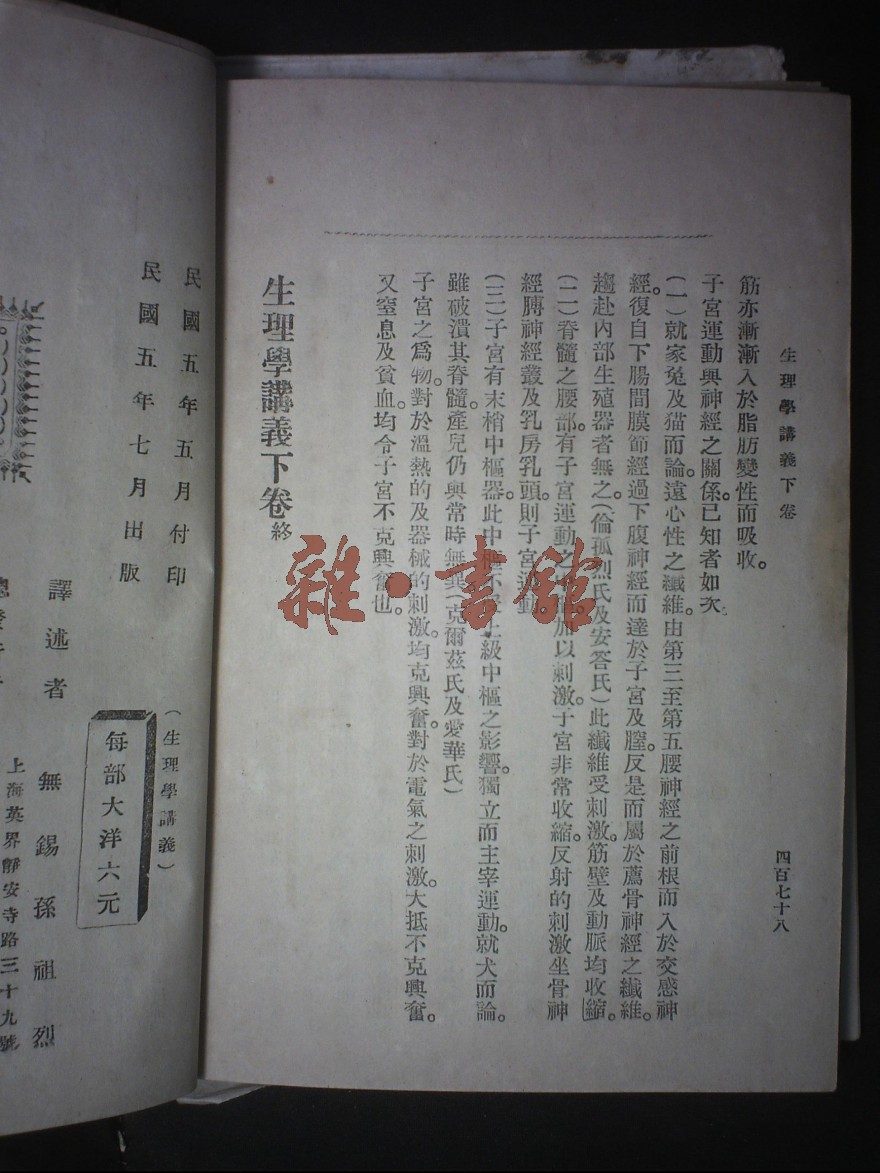 生理學講義下卷
四百七十八
筋亦漸漸入於脂肪變性而吸收。
子宮運動與神經之關係。已知者如次
(一)就家兔及猫而論。遠心性之纖維。由第三至第五腰神經之前根而入於交感神
經。復自下腸間膜節經過下腹神經而達於子宮及膣。反是而屬於薦骨神經之纖維。
趨赴內部生殖器者無之(倫孤烈氏及安答氏)此纖維受刺激。筋壁及動脈均收縮。
(二)脊髓之腰部。有子宮運動之中 加以刺激。子宮非常收縮。反射的刺激坐骨神
經膊神經叢及乳房乳頭。則子宮運動。
(三)子宮有末梢中樞器。此中樞不 上級中樞之影響。獨立而主宰運動。就犬而論。
雖破潰其脊髓。產兒仍與常時無異(克爾茲氏及愛華氏)
子宮之爲物。對於溫熱的及器械的刺激。均克興奮。對於電氣之刺激。大抵不克興奮。
又窒息及貧血。均令子宮不克興奮也。
生理學講義下卷終
雜·書館
民國五年五月付印
民國五年七月出版
(生理學講義)
每部大洋六元
譯述者 無錫孫祖烈
上海英界靜安寺路三十九號